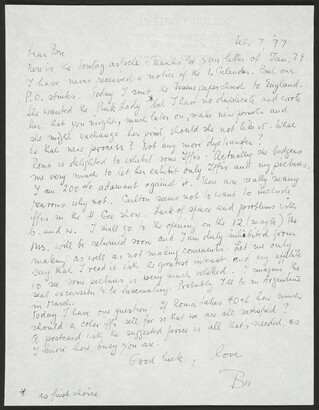 Feb. 7, '77
Dear Ron
Here is the Sontag article. Thanks for your letter of Jan. 29
I have never received a notice of the I. Calendar. Point one
P.O. stinks. Today I sent the tissue paper ... to England.
She wanted the Pink Lady * but I have no duplicate and wrote
her that you might, much later on, make new prints and
she might exchange her print, should she not like it. What
is that new process? Not any more dye transfer?
Roma is delighted to exhibit some Effis. Actually she badgers
me very much to let her exhibit only Effis and my pictures
I am 200% adamant against it. There are really many
reasons why not. Carlton seems not to want to include
Effis in the H Gee show. Lack of space and problems with
b. and w. I shall go to the opening on the 12 (maybe) the
Ms. will be returned soon and I am duly inhibited from
making as well as not making comments. Let me only
say that I read it with the greatest interest and my appetite
to see some pictures is very much whetted. I imagine the
seal excursion to be fascinating. Probably I'll be in Argentina
in March.
Today I have one question. If Roma takes 40% how much
should a color Effi sell for so that we are all satisfied?
A postcard with the suggested prices is all that's needed, as
I know how busy you are.
Good luck, love
* as first choice